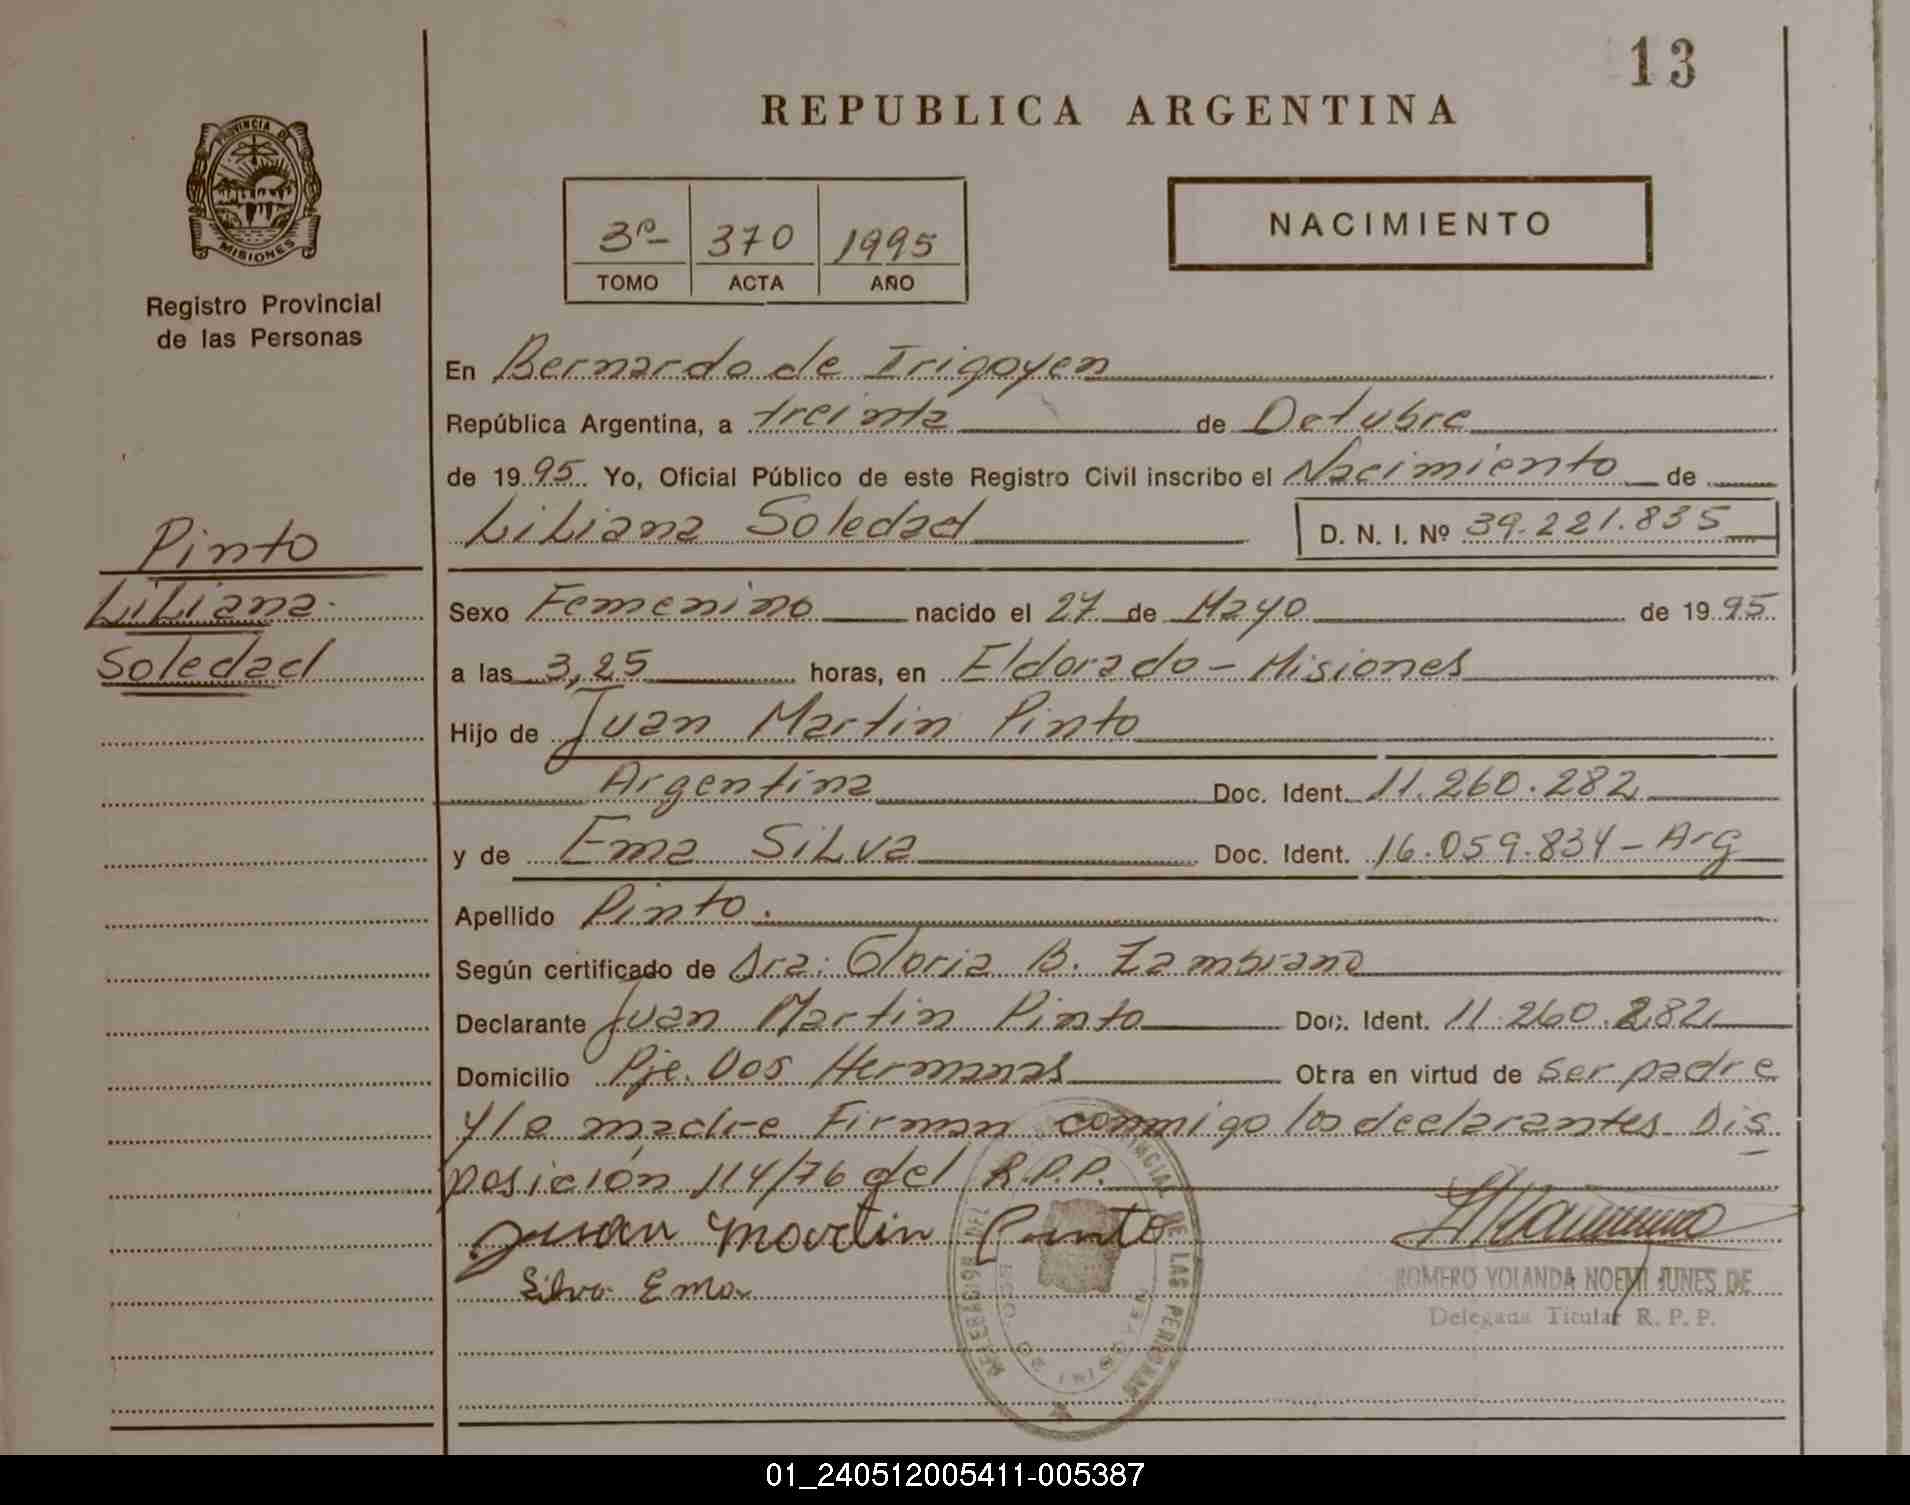 13
REPUBLICA ARGENTINA
PROVINCIA DE
MISIONES
Registro Provincial
de las Personas
3º- 370 1995
TOMO ACTA AÑO
NACIMIENTO
En Bernardo de Irigoyen
República Argentina, a treinta de Octubre
de 1995 Yo, Oficial Público de este Registro Civil inscribo el Nacimiento de
Liliana Soledad D. N. I. Nº 39.221.835
Pinto
Liliana
Soledad
Sexo Femenino nacido el 27 de Mayo de 1995
a las 3,25 horas, en Eldorado - Misiones
Hijo de Juan Martin Pinto
Argentina Doc. Ident. 11.260.282
y de Ema Silva Doc. Ident. 16.059.834 - Arg
Apellido Pinto.
Según certificado de Dra: Gloria B. Zambrano
Declarante Juan Martin Pinto Doc. Ident. 11.260.282
Domicilio Pje. Dos Hermanas Obra en virtud de ser padre
y la madre Firman conmigo los declarantes Dis
posición 114/76 del R.P.P.
Juan Martin Pinto
Silva Ema
ROMERO YOLANDA NOEMI JUNES DE
Delegada Titular R. P. P.
DE LAS PERSONAS
01_240512005411-005387